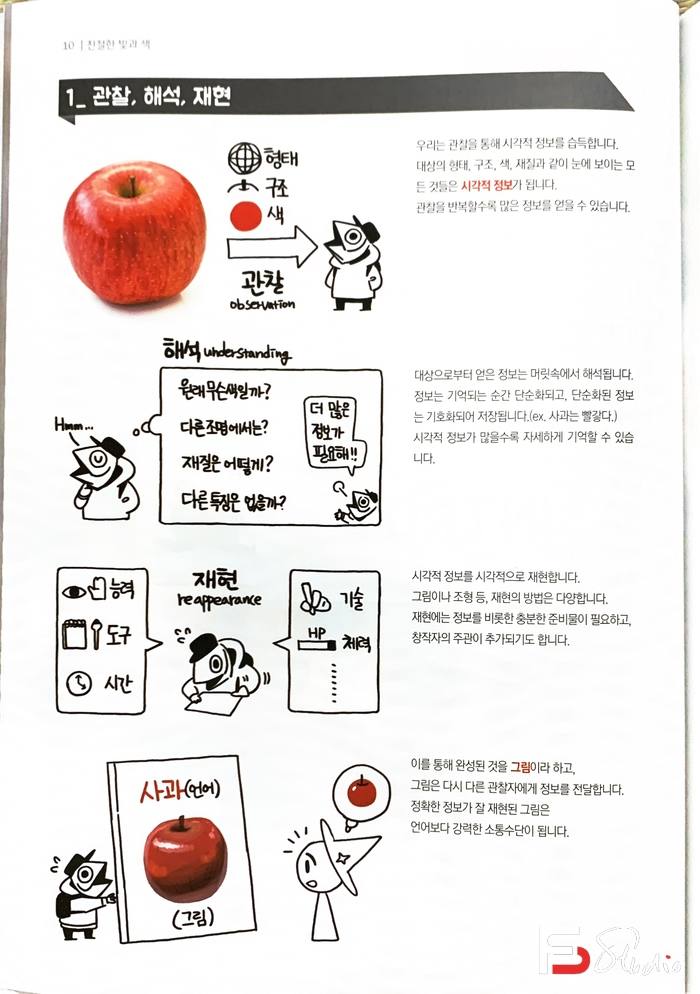 10 | 친절한 빛과 색
1_ 관찰, 해석, 재현
형태
구조
색
관찰
observation
우리는 관찰을 통해 시각적 정보를 습득합니다.
대상의 형태, 구조, 색, 재질과 같이 눈에 보이는 모
든 것들은 시각적 정보가 됩니다.
관찰을 반복할수록 많은 정보를 얻을 수 있습니다.
해석 understanding
Hmm...
원래 무슨색일까?
다른 조명에서는?
재질은 어떻게?
다른 특징은 없을까?
더 많은
정보가
필요해!!
대상으로부터 얻은 정보는 머릿속에서 해석됩니다.
정보는 기억되는 순간 단순화되고, 단순화된 정보
는 기호화되어 저장됩니다.(ex. 사과는 빨갛다.)
시각적 정보가 많을수록 자세하게 기억할 수 있습
니다.
능력
도구
시간
재현
reappearance
기술
HP
체력
시각적 정보를 시각적으로 재현합니다.
그림이나 조형 등, 재현의 방법은 다양합니다.
재현에는 정보를 비롯한 충분한 준비물이 필요하고,
창작자의 주관이 추가되기도 합니다.
사과(언어)
(그림)
이를 통해 완성된 것을 그림이라 하고,
그림은 다시 다른 관찰자에게 정보를 전달합니다.
정확한 정보가 잘 재현된 그림은
언어보다 강력한 소통수단이 됩니다.